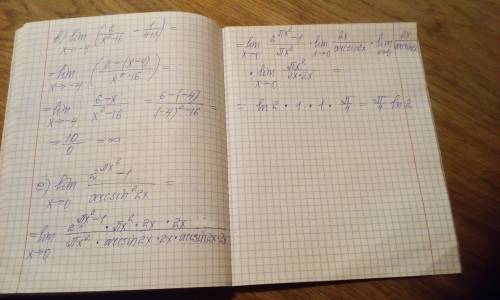 в) lim x→-4 (2/(x²-16) - 1/(4+x)) =
= lim x→-4 ((2-(x-4))/(x²-16)) =
= lim x→-4 (6-x)/(x²-16) = (6-(-4))/((-4)²-16) =
= 10/0 = ∞
е) lim x→0 (2^(πx²)-1)/(arcsin²2x) =
= lim x→0 (2^(πx²)-1 · πx² · 2x · 2x)/(πx² · arcsin2x · 2x · arcsin2x · 2x)
= lim x→0 (2^(πx²)-1)/(πx²) · lim x→0 2x/(arcsin2x) · lim x→0 2x/(arcsin2x)
· lim x→0 πx²/(2x·2x) =
= ln2 · 1 · 1 · π/4 = π/4 ln2